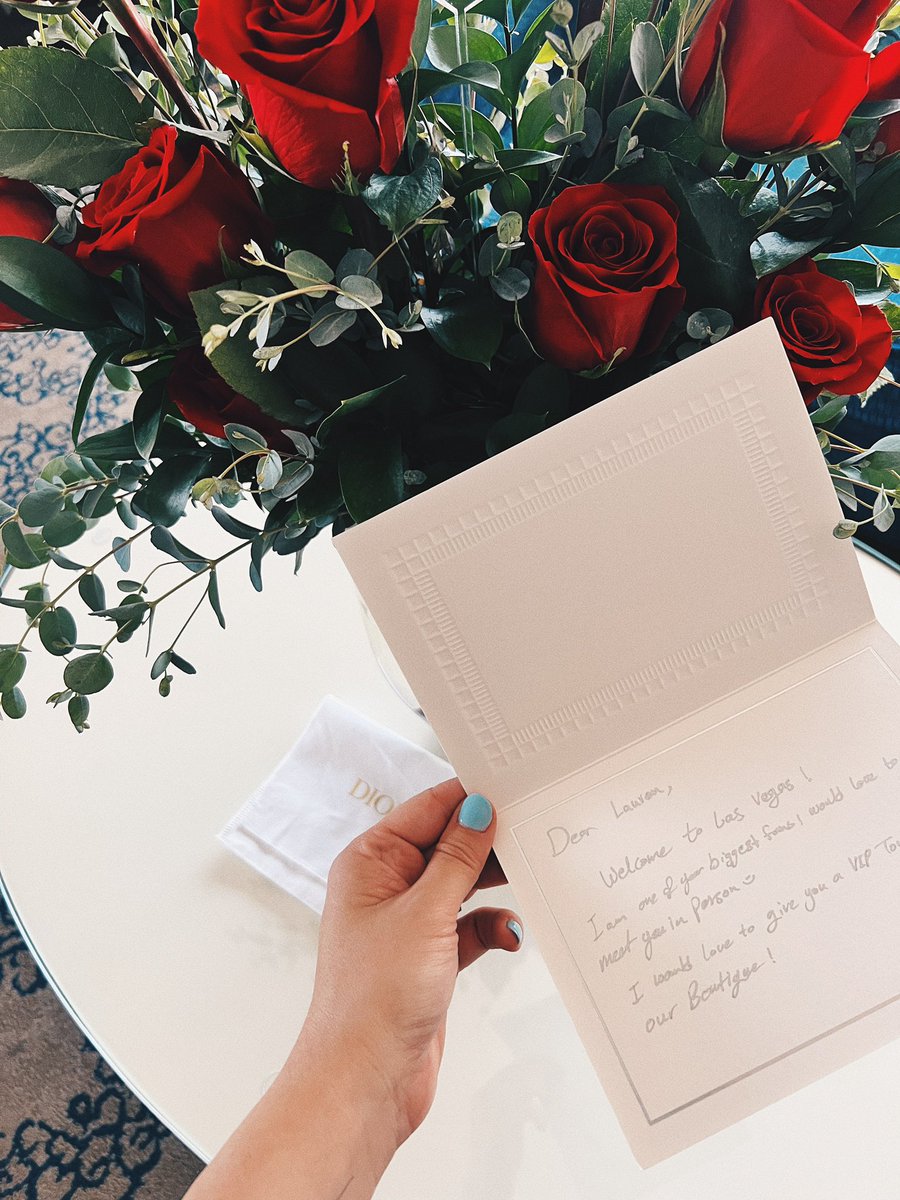 DIO
Dear Lauren,
Welcome to Las Vegas!
I am one of your biggest fans! I would love to
meet you in person
I would love to give you a VIP Tou
our Boutique!